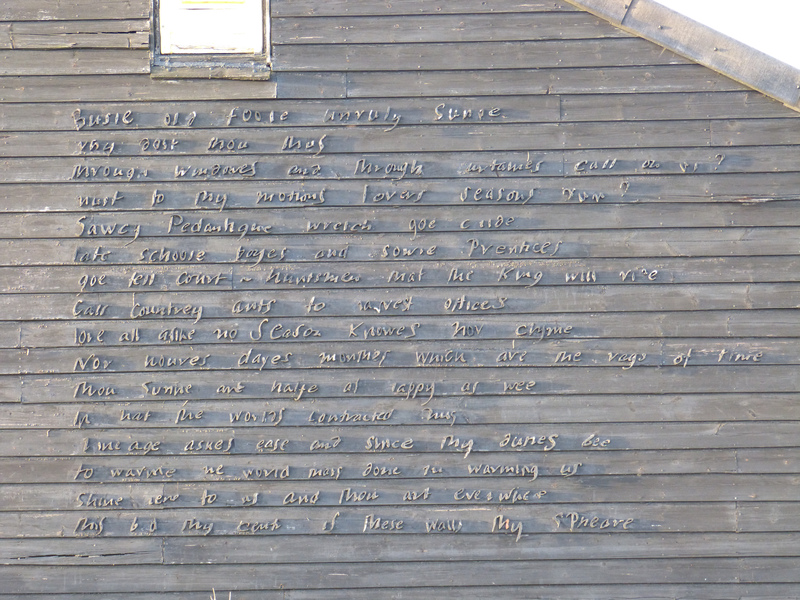 Busie old foole unruly Sunne
why dost thou thus
through windowes and through curtaines call on us?
must to thy motions lovers seasons run?
Sawcy Pedantique wretch goe chide
late schoole boyes and sowre Prentices
goe tell Court Huntsmen that the King will ride
Call Countrey ants to harvest offices
love all alike no Season Knowes nor clyme
Nor houres dayes monthes which are the rags of time
Thou Sunne art halfe as happy as wee
In that the worlds contracted thus
Thine age askes ease and since thy duties bee
to warme the world thats done in warming us
Shine here to us and thou art everywhere
This bed thy center is these walls thy spheare